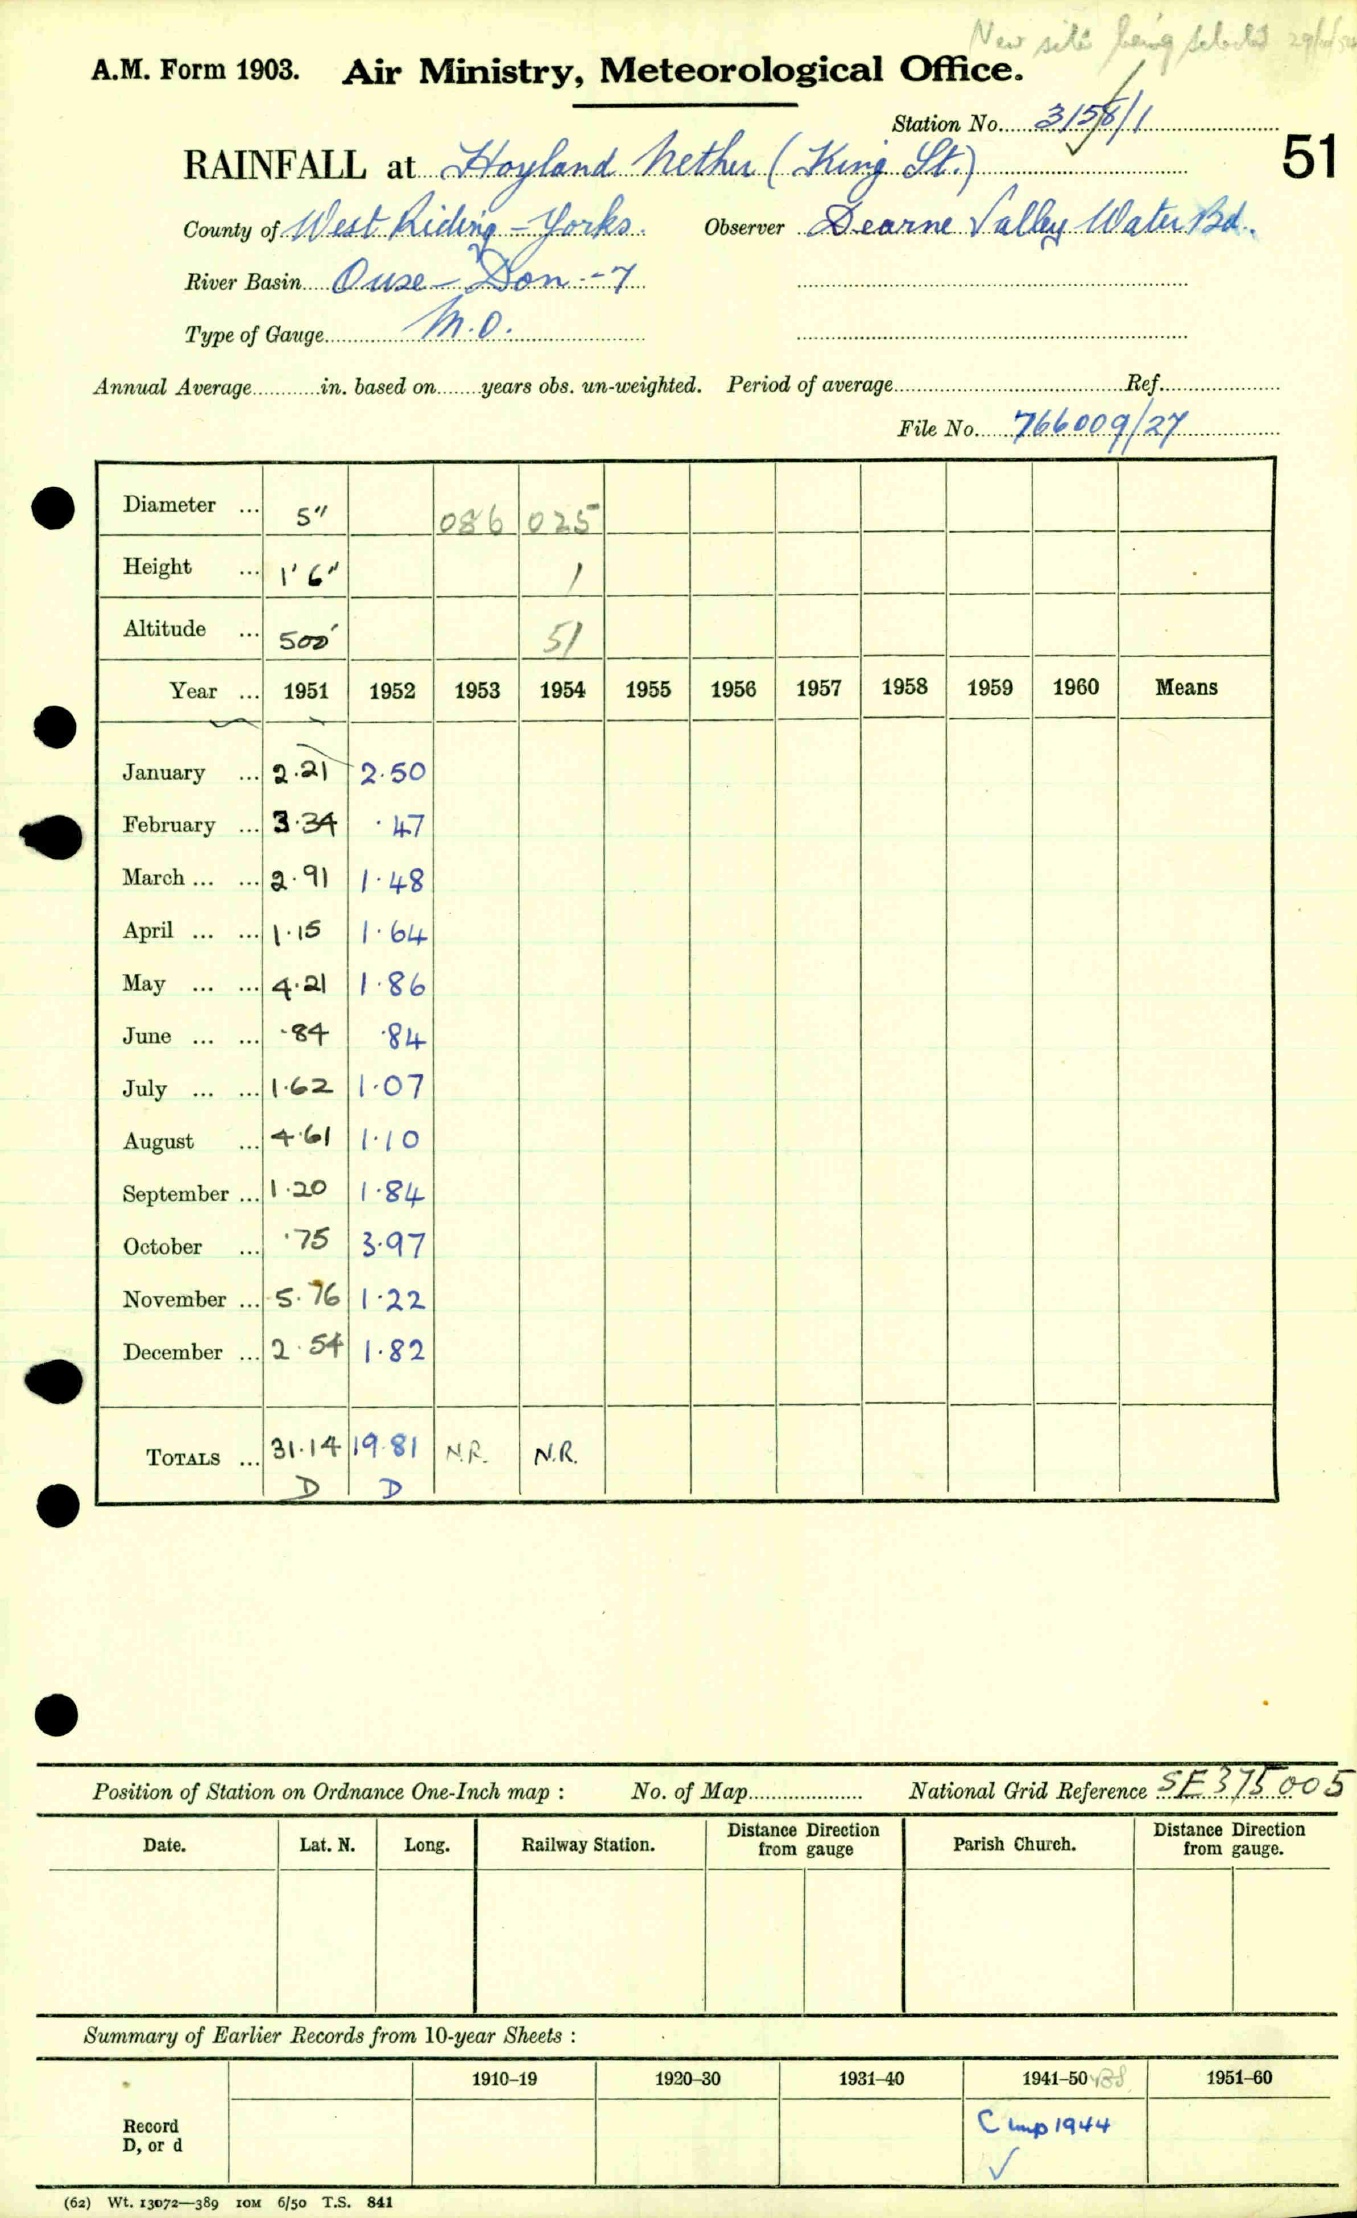 New site being selected
A.M. Form 1903. Air Ministry, Meteorological Office.
Station No. 3158/1
51
RAINFALL at Hoyland Nether (King St.)
County of West Riding - Yorks. Observer Dearne Valley Water Bd.
River Basin Ouse - Don - 7
Type of Gauge M.O.
Annual Average in. based on years obs. un-weighted. Period of average Ref.
File No. 766009/27
Diameter ... 5" 086 025
Height ... 1' 6" 1
Altitude ... 500' 51
Year ... 1951 1952 1953 1954 1955 1956 1957 1958 1959 1960 Means
January ... 2.21 2.50
February ... 3.34 .47
March ... ... 2.91 1.48
April ... ... 1.15 1.64
May ... ... 4.21 1.86
June ... ... .84 .84
July ... ... 1.62 1.07
August ... 4.61 1.10
September ... 1.20 1.84
October ... .75 3.97
November ... 5.76 1.22
December ... 2.54 1.82
TOTALS ... 31.14 19.81 N.R. N.R.
D D
Position of Station on Ordnance One-Inch map : No. of Map National Grid Reference SE 375005
Date. Lat. N. Long. Railway Station. Distance from Direction gauge Parish Church. Distance from Direction gauge.
Summary of Earlier Records from 10-year Sheets :
1910–19 1920–30 1931–40 1941–50 1951–60
Record
D, or d
C imp 1944
✓
(62) Wt. 13072—389 10M 6/50 T.S. 841